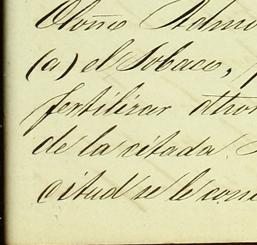 Otoño Admi
(a) el Tobaco,
fertilizar
de la citada
citud se le con